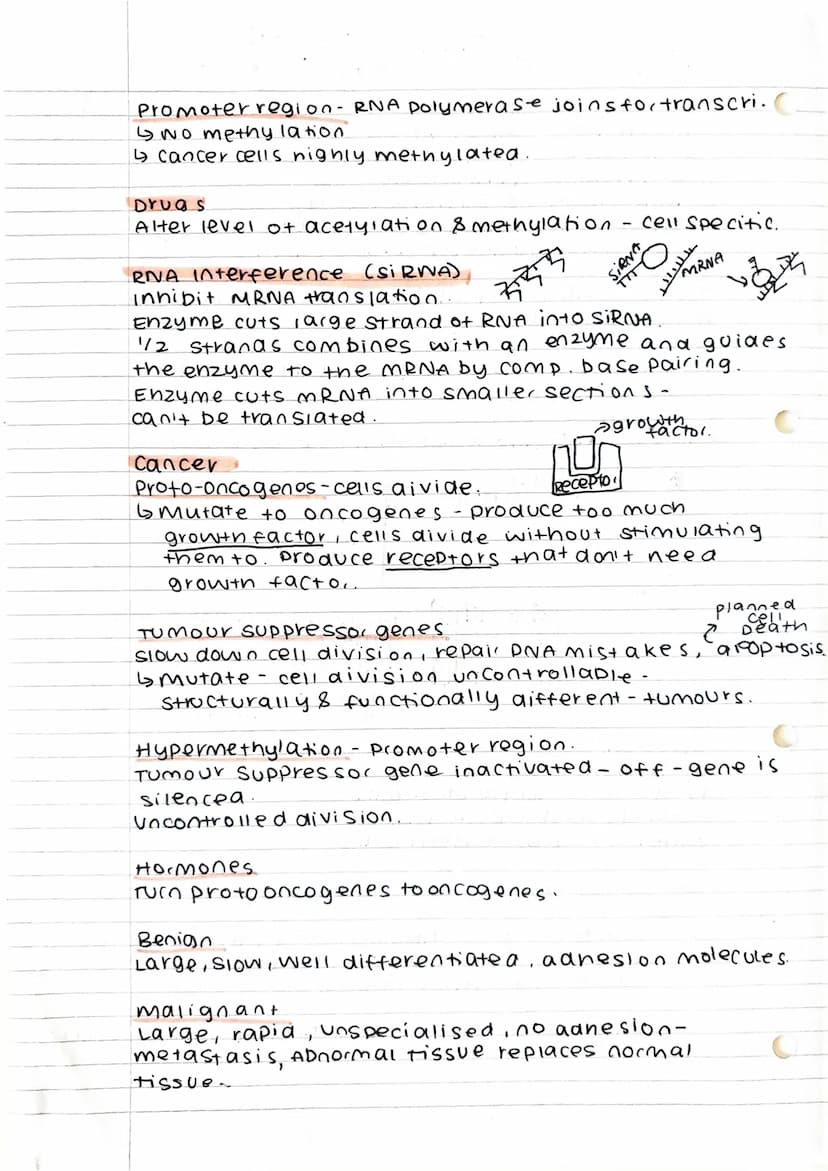 Promoter region - RNA polymerase joins for transcri.
↳ No methylation
↳ cancer cells highly methylated.
Drugs
Alter level of acetylation & methylation - cell specific.
RNA Interference (siRNA)
siRNA
mRNA
Inhibit mRNA translation.
Enzyme cuts large strand of RNA into siRNA.
1/2 strands combines with an enzyme and guides
the enzyme to the mRNA by comp. base pairing.
Enzyme cuts mRNA into smaller sections -
can't be translated.
growth
factor.
Receptor
Cancer
Proto-oncogenes - cells divide.
↳ Mutate to oncogenes - produce too much
growth factor, cells divide without stimulating
them to. Produce receptors that don't need
growth factor.
planned
cell
Death
Tumour suppressor genes
Slow down cell division, repair DNA mistakes, apoptosis
↳ Mutate - cell division uncontrollable -
structurally & functionally different - tumours.
Hypermethylation - promoter region.
Tumour suppressor gene inactivated - off - gene is
silenced.
Uncontrolled division.
Hormones
Turn proto oncogenes to oncogenes.
Benign
Large, slow, well differentiated, adhesion molecules.
Malignant
Large, rapid, unspecialised, no adhesion -
metastasis, Abnormal tissue replaces normal
tissue -